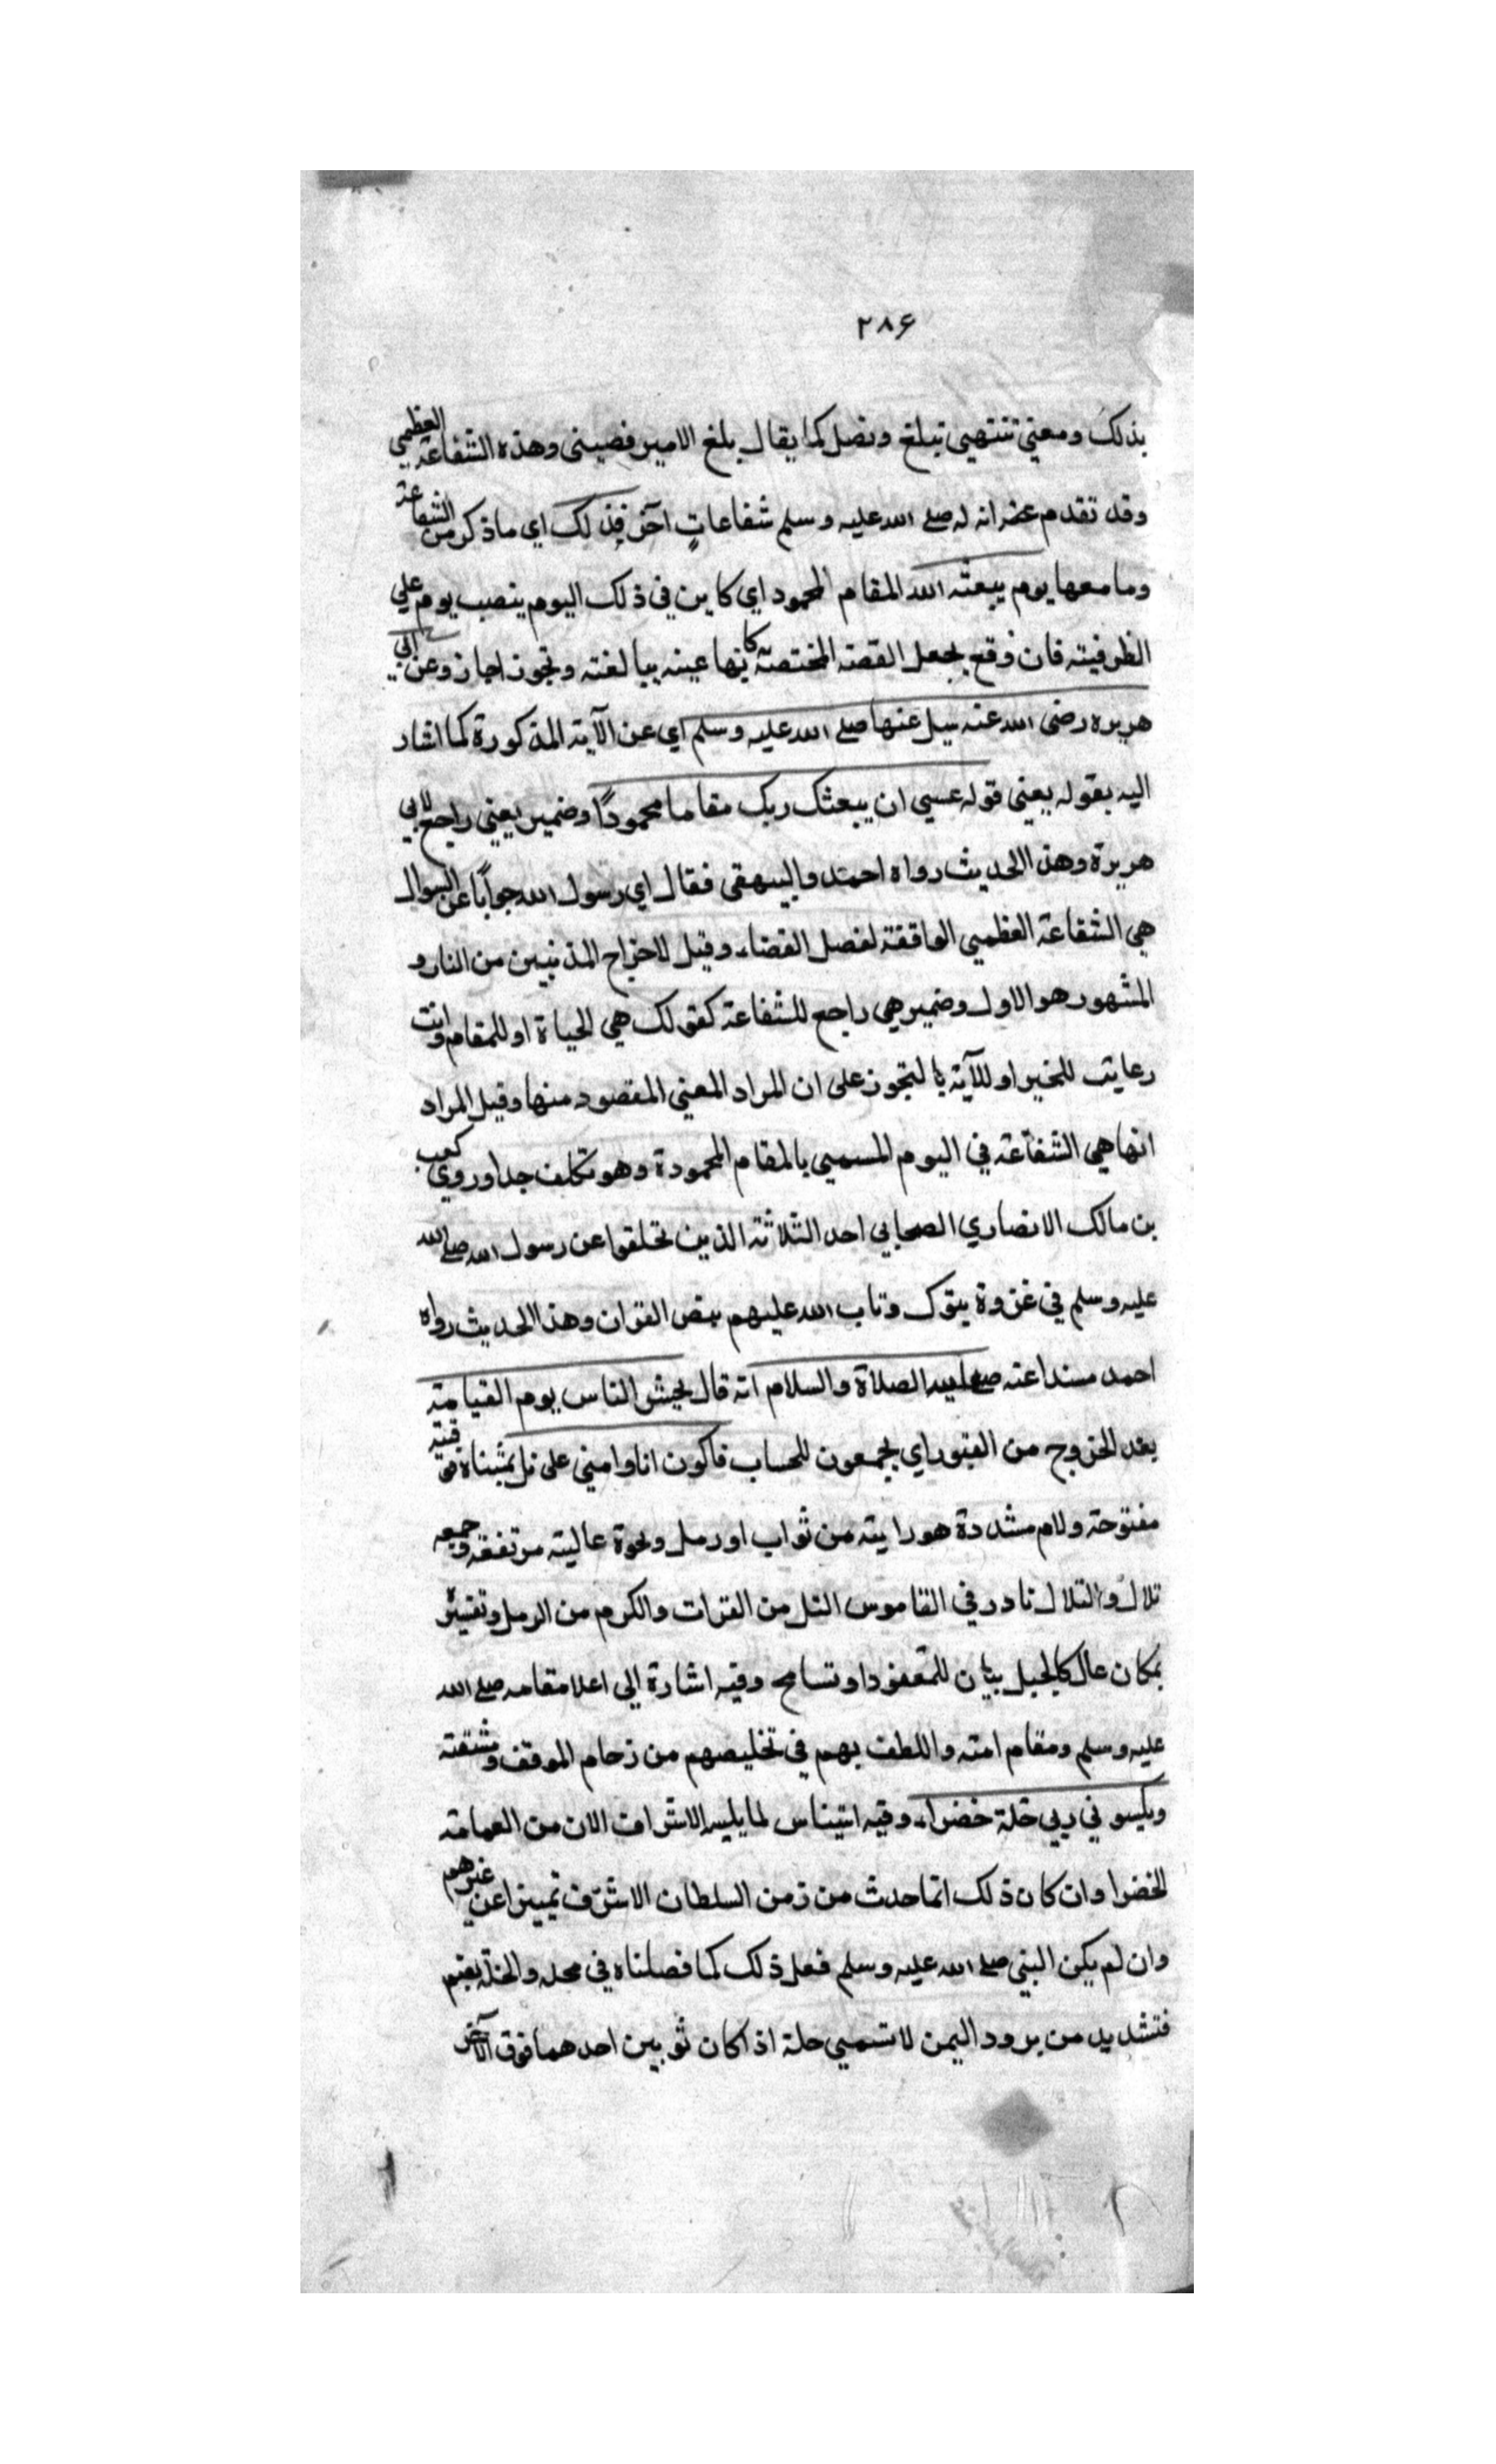 ٢٨۶
بذلك ومعنى تنتهي تبلغ وتصل كما يقال بلغ الامير فصيتي وهذه الشفاعة العظمي
وقد تقدم عنه انه له صلے الله عليه وسلم شفاعاتٍ آخر فذلك اي ما ذكر من الشفاعة
وما معها يوم يبعثه الله المقام المحمود اي كاين في ذلك اليوم ينصب يوم علي
الظرفيته فان وقع بجعل القصة المختصة كانها عينه ببالغته وتجوز اجاز وعن ابي
هريره رضى الله عنه سيل عنها صلے الله عليه وسلم اي عن الآية المذكورة كما اشار
اليه بقوله يعني قوله عسي ان يبعثك ربك مقاما محمودًا وضمير يعني راجع لابي
هريرة وهذا الحديث رواه احمد والبيهقى فقال اي رسول الله جوابًا عن السوال
هي الشفاعة العظمي الواقفة لفصل القضاء وقيل لاخراج المذنبين من النار و
المشهور هو الاول وضمير هي راجع للشفاعة كقولك هي الحياة او للمقام وانت
رعايت للخبر او للآية بالتجوز على ان المراد المعني المقصود منها وقيل المراد
انها هي الشفاعة في اليوم المسمي بالمقام المحمودة وهو تكلف جدا وروي كعب
بن مالك الانصاري الصحابي احد الثلاثة الذين تخلقوا عن رسول الله صلے الله
عليه وسلم في غزوة يتوك وتاب الله عليهم بنص القران وهذا الحديث رواه
احمد مسندا عنه عليه الصلاة والسلام انه قال يحشر الناس يوم القيامة
بعد الخروج من القبور اي يجمعون للحساب فاكون انا وامتي على تل بمثناه فوقية
مفتوحة ولام مشددة هو رابية من ثواب او رمل ونحوة عالية مرتفعه وجمعه
تلال والتلال نادر في القاموس التل من التراب والكوم من الرمل وتفسيره
بمكان عال كالجبل بيان للمقفودا وتسامح وفيه اشارة الي اعلا مقامه صلے الله
عليه وسلم ومقام امته واللطف بهم في تخليصهم من زحام الموقف ومشقته
ويكسوني ربي حلة خضراء وفيه ايتناس لما يلبسه الاشراف الان من العمامة
الخضرا وان كان ذلك انما حدث من زمن السلطان الاشرف تمييزا عن غيرهم
وان لم يكن النبي صلے الله عليه وسلم فعل ذلك كما فصلناه في محله والحلة بضم
فتشديد من برود اليمن لا تسمي حلة اذا كان ثوبين احدهما فوق الآخر